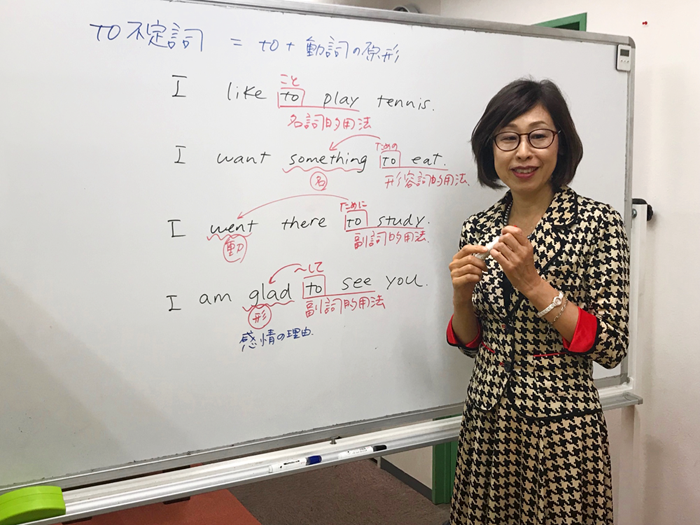 to 不定詞 = to + 動詞の原形
こと
I like to play tennis.
名詞的用法
ための
I want something to eat.
名
形容詞的用法.
ために
I went there to study.
動
副詞的用法.
～して
I am glad to see you.
形
副詞的用法
感情の理由.